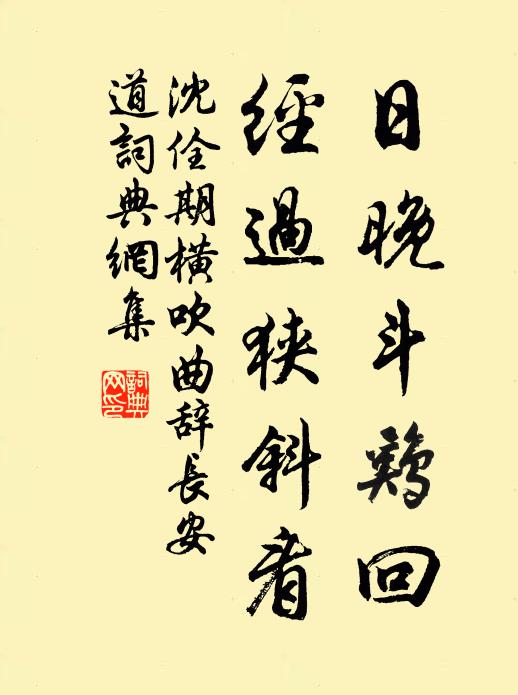 日晚斗鷄回
經過狹斜看
沈佺期橫吹曲辞長安
道詞典網集
詞典
网印